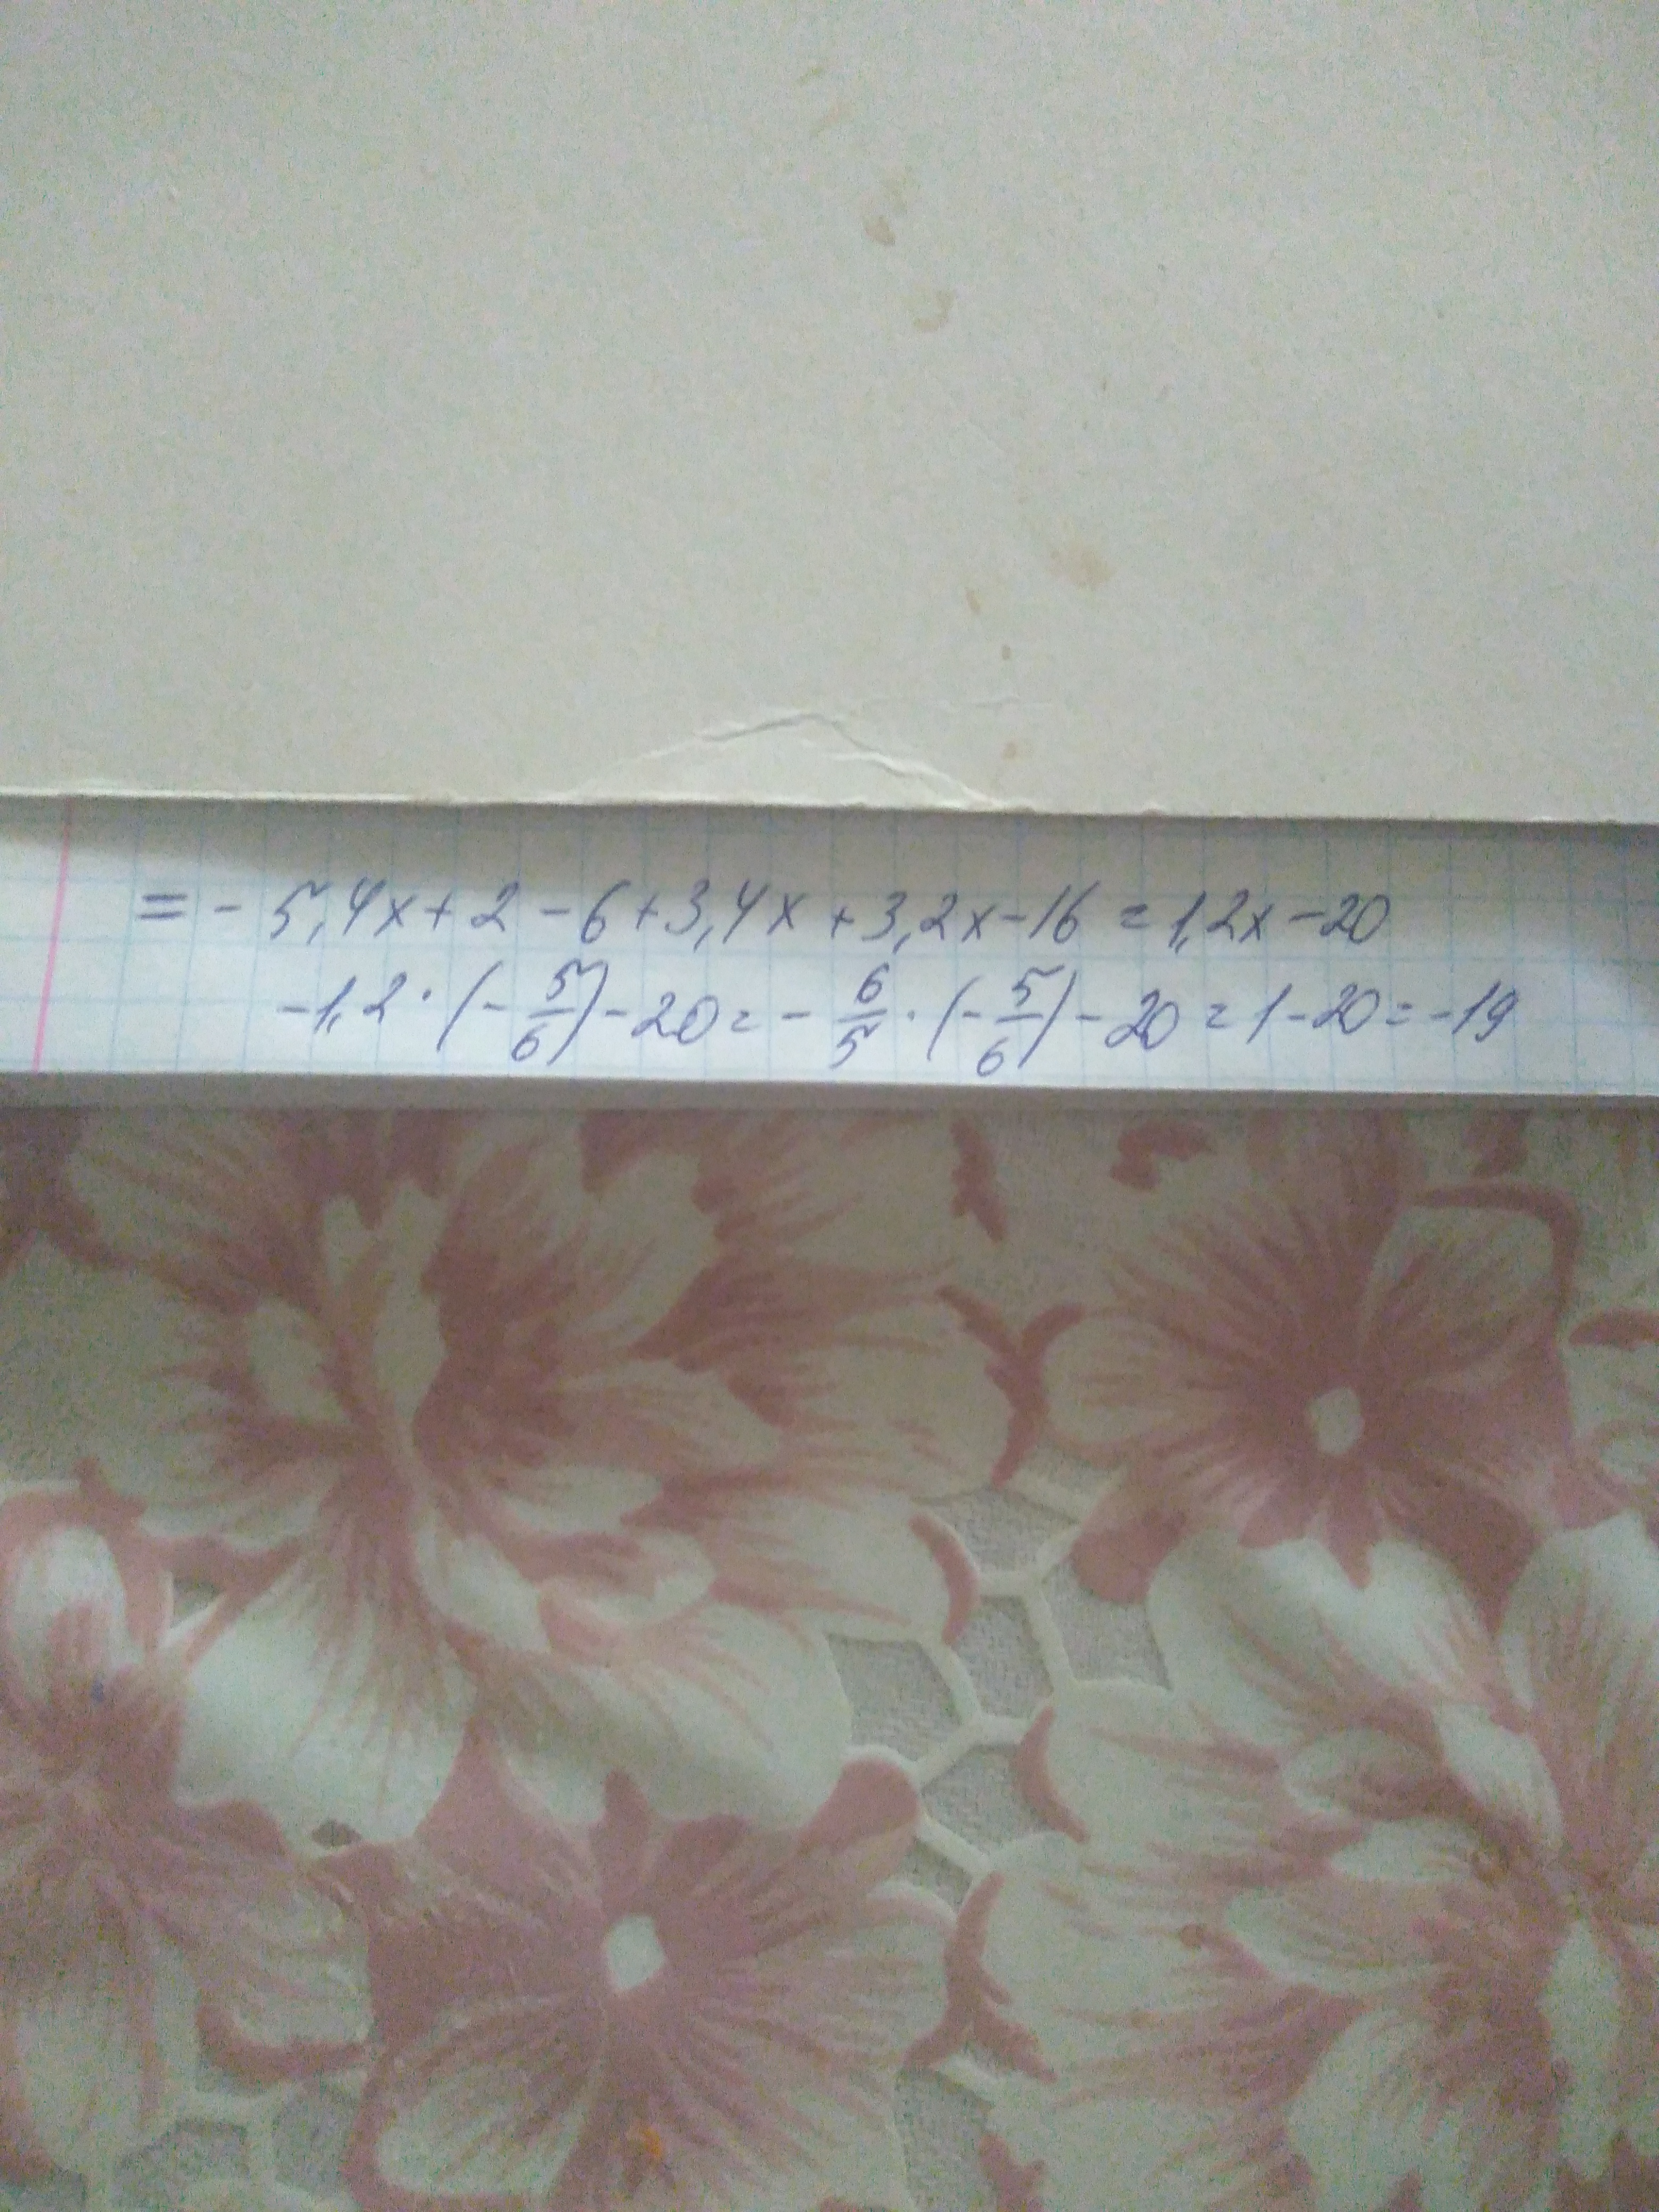 = - 5,4x + 2 - 6 + 3,4x + 3,2x - 16 = 1,2x - 20
-1,2 · (- 5/6) - 20 = - 6/5 · (- 5/6) - 20 = 1 - 20 = -19